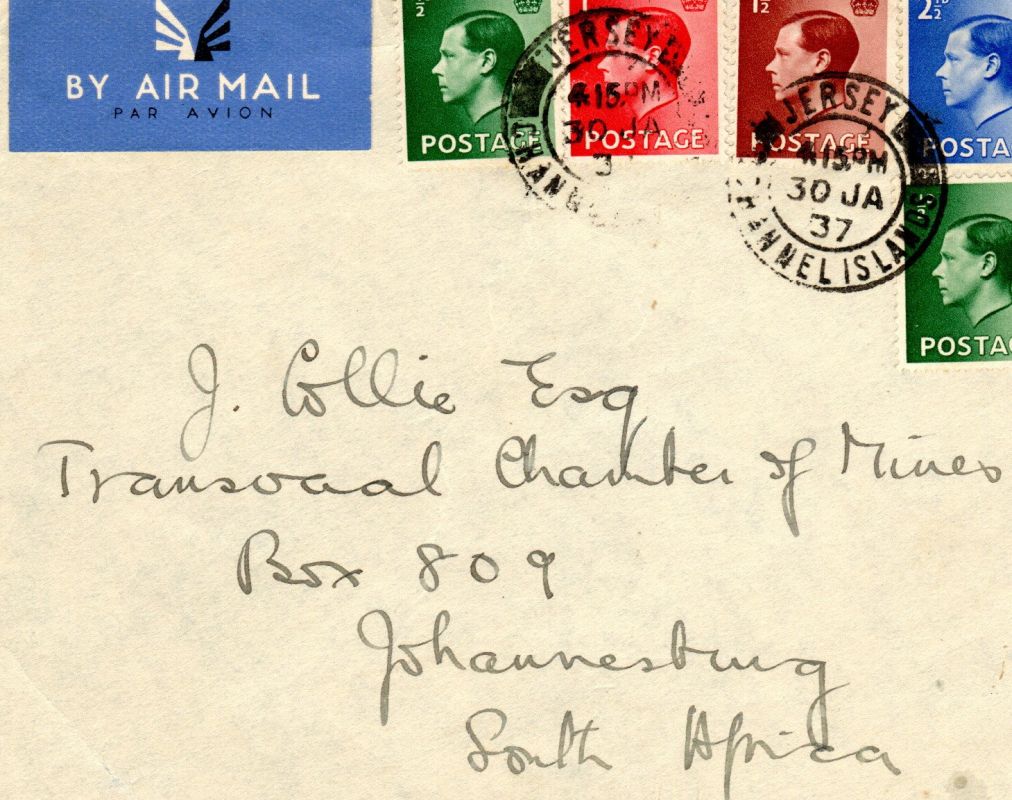 BY AIR MAIL
PAR AVION
½
POSTAGE
1
POSTAGE
1½
POSTAGE
2½D
POSTA
½
POSTAG
JERSEY
4.15PM
30 JA
3
CHANN
JERSEY
4.15PM
30 JA
37
CHANNEL ISLANDS
J. Collie Esq
Transvaal Chamber of Mines
Box 809
Johannesburg
South Africa